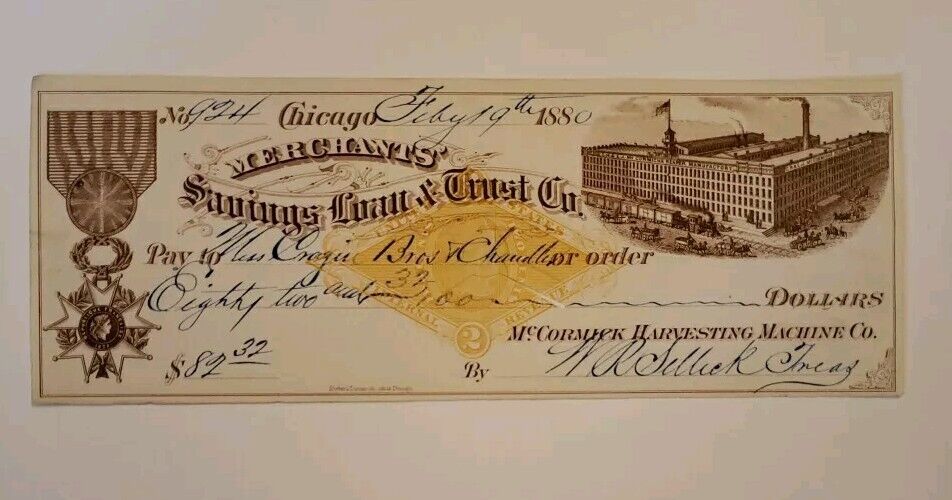 No. 924 Chicago Feby 19th 1880
MERCHANTS'
Savings Loan & Trust Co.
Pay to Mess Cragin Bros & Chandler or order
Eighty two and 32/100 DOLLARS
UNITED STATES
INTERNAL REVENUE
2
McCORMICK HARVESTING MACHINE Co.
$82 32 By W R Sellick Treas